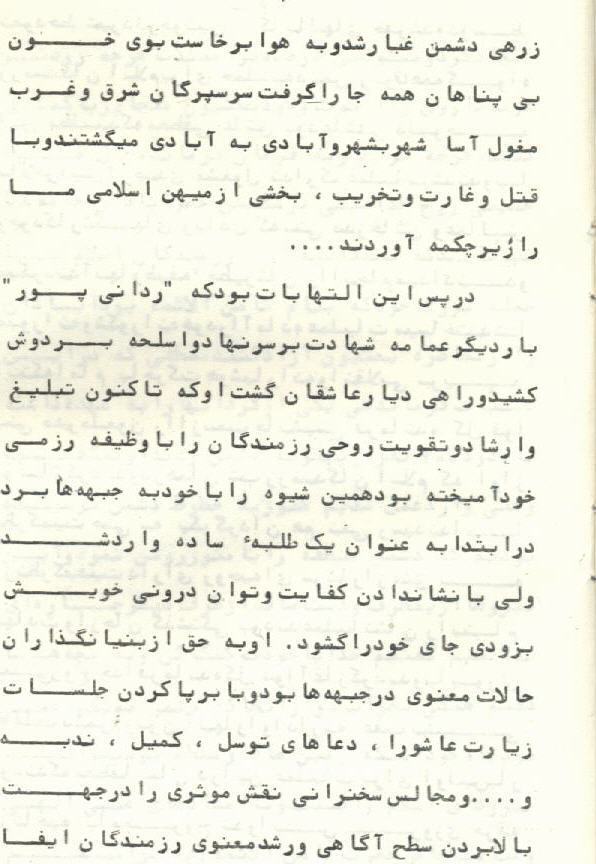 زرهی دشمن غبار شد و به هوا برخاست بوی خـــــون
بی پناهان همه جا را گرفت سرسپرکان شرق وغــرب
مغول آسا شهربشهر و آبادی به آبادی میگشتند و بـا
قتل و غارت و تخریب ، بخشی از میهن اسلامی مـــــا
را زیر چکمه آوردند ....
در پس این التهابات بود که "ردانی پـــور"
بار دیگر عمامه شهادت بر سر نهاد و اسلحه بــــر دوش
کشید و راهی دیار عاشقان گشت او که تاکنون تبلیغ
وارشاد و تقویت روحی رزمندگان را با وظیفه رزمــی
خود آمیخته بود همین شیوه را با خود به جبهه‌ها بــرد
در ابتدا به عنوان یک طلبهٔ ساده وارد شـــــــد
ولی با نشان دادن کفایت و توان درونی خویـــــش
بزودی جای خود را گشود . او به حق از بنیانگـذاران
حالات معنوی در جبهه‌ها بود و با برپا کردن جلســـات
زیارت عاشورا ، دعاهای توسل ، کمیل ، ندبــــــه
و .... و مجالس سخنرانی نقش موثری را در جهــــــت
بالابردن سطح آگاهی و رشد معنوی رزمندگان ایفـــا